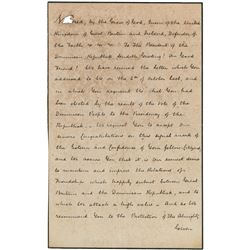 by the Grace of God, Queen of the United
Kingdom of Great Britain and Ireland, Defender of
the Faith &c &c &c To The President of the
Dominican Republic, Sendeth Greeting! Our Good
Friend! We have received the letter which You
addressed to Us on the 6th of October last, and
in which You acquaint Us that You had
been elected by the results of the vote of the
Dominican People to the Presidency of the
Republic. We request You to accept Our
sincere Congratulations on this signal mark of
the Esteem and Confidence of Your fellow-Citizens
and We assure You that it is Our earnest desire
to maintain and improve the Relations of
Friendship which happily subsist between Great
Britain and the Dominican Republic, and to
which We attach a high value. And so We
recommend You to the Protection of the Almighty.
Given